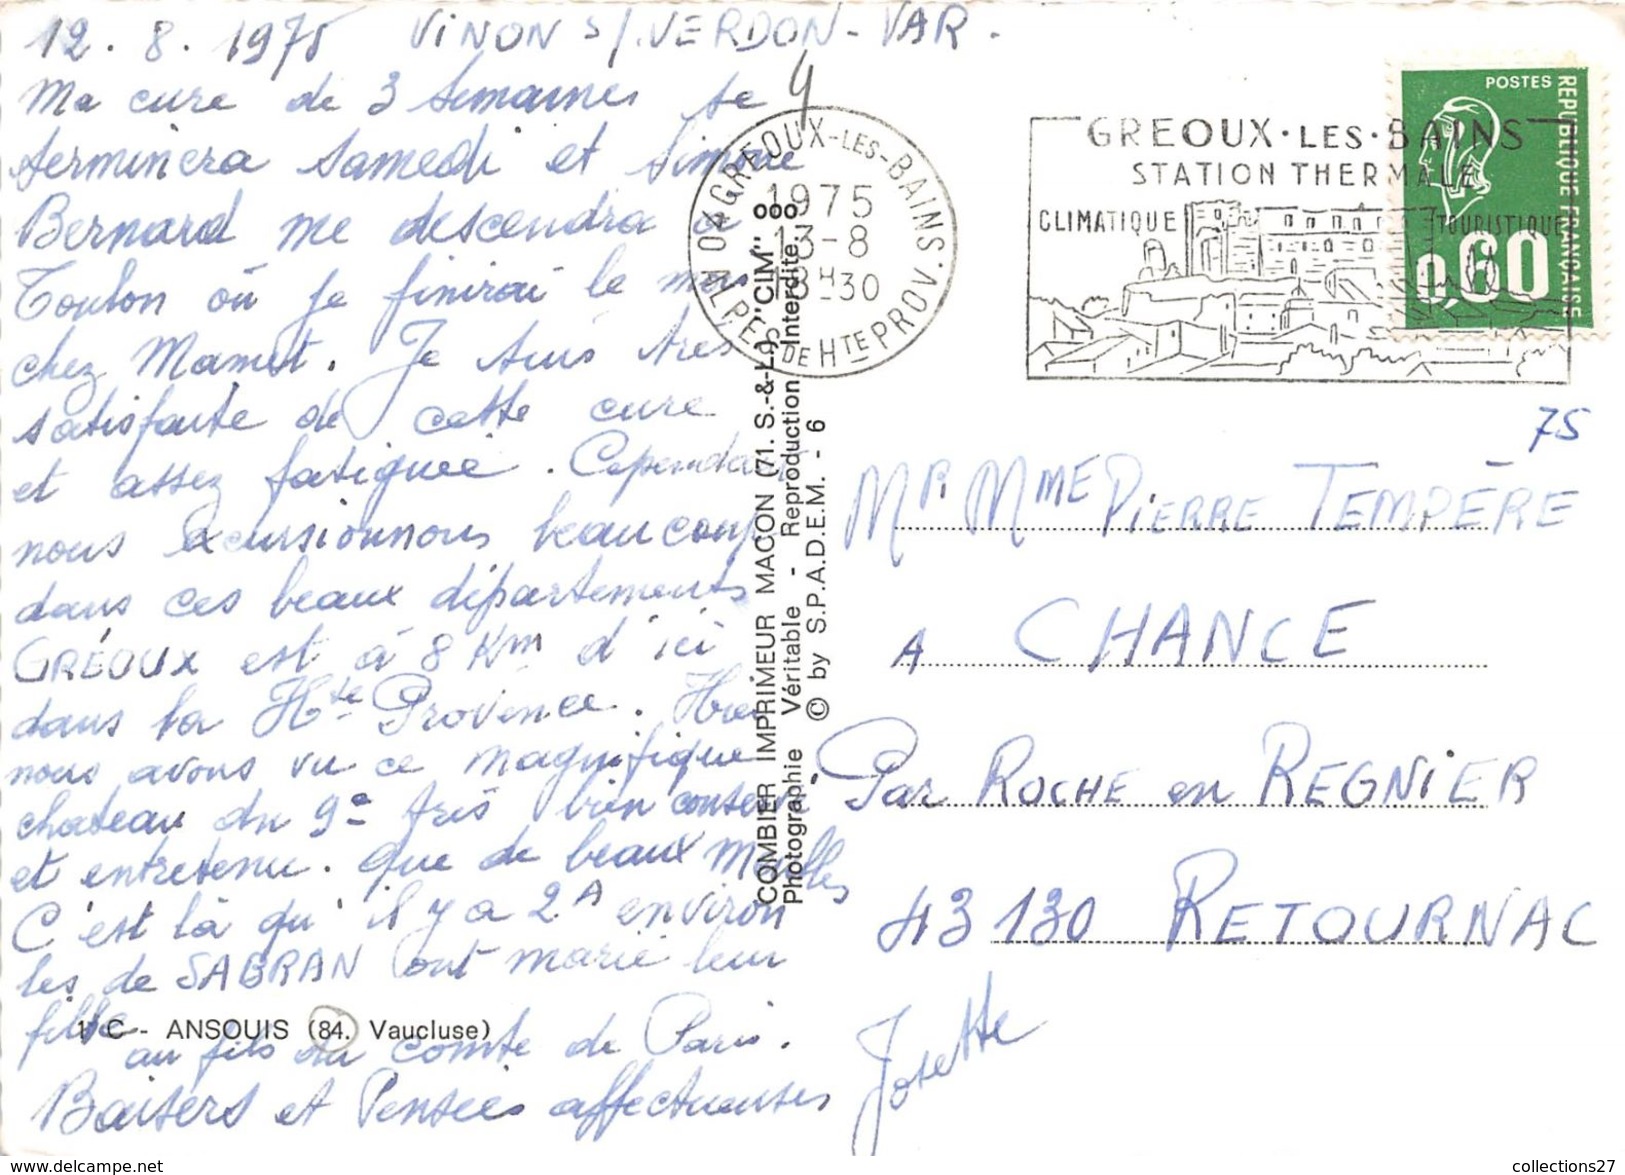 12.8.1975 VINON s/ VERDON - VAR.
Ma cure de 3 semaines se
terminera samedi et Simone
Bernard me descendra à
Toulon où je finirai le mois
chez Mamet. Je suis très
satisfaite de cette cure
et assez fatiguée. Cependant
nous excursionnons beaucoup
dans ces beaux départements
GRÉOUX est à 8 Km d'ici
dans la Hte Provence. Hier
nous avons vu ce magnifique
chateau du 9e très bien conservé
et entretenu. que de beaux meubles
C'est là qu'il y a 2A environ
les de SABRAN ont marié leur
fille
au fils du comte de Paris.
Baisers et Pensées affectueuses
Josette
11 C - ANSOUIS (84. Vaucluse)
COMBIER IMPRIMEUR MACON (71. S.-&-L.) "CIM"
Photographie Véritable - Reproduction Interdite
© by S.P.A.D.E.M. - 6
04 GREOUX-LES-BAINS
1975
13-8
18H30
ALPES DE HTE PROV.
GREOUX·LES·BAINS
STATION THERMALE
CLIMATIQUE TOURISTIQUE
POSTES
REPUBLIQUE FRANÇAISE
0,60
75
Mr. Mme PIERRE TEMPÈRE
A CHANCE
Par ROCHE en REGNIER
43130 RETOURNAC
collections27